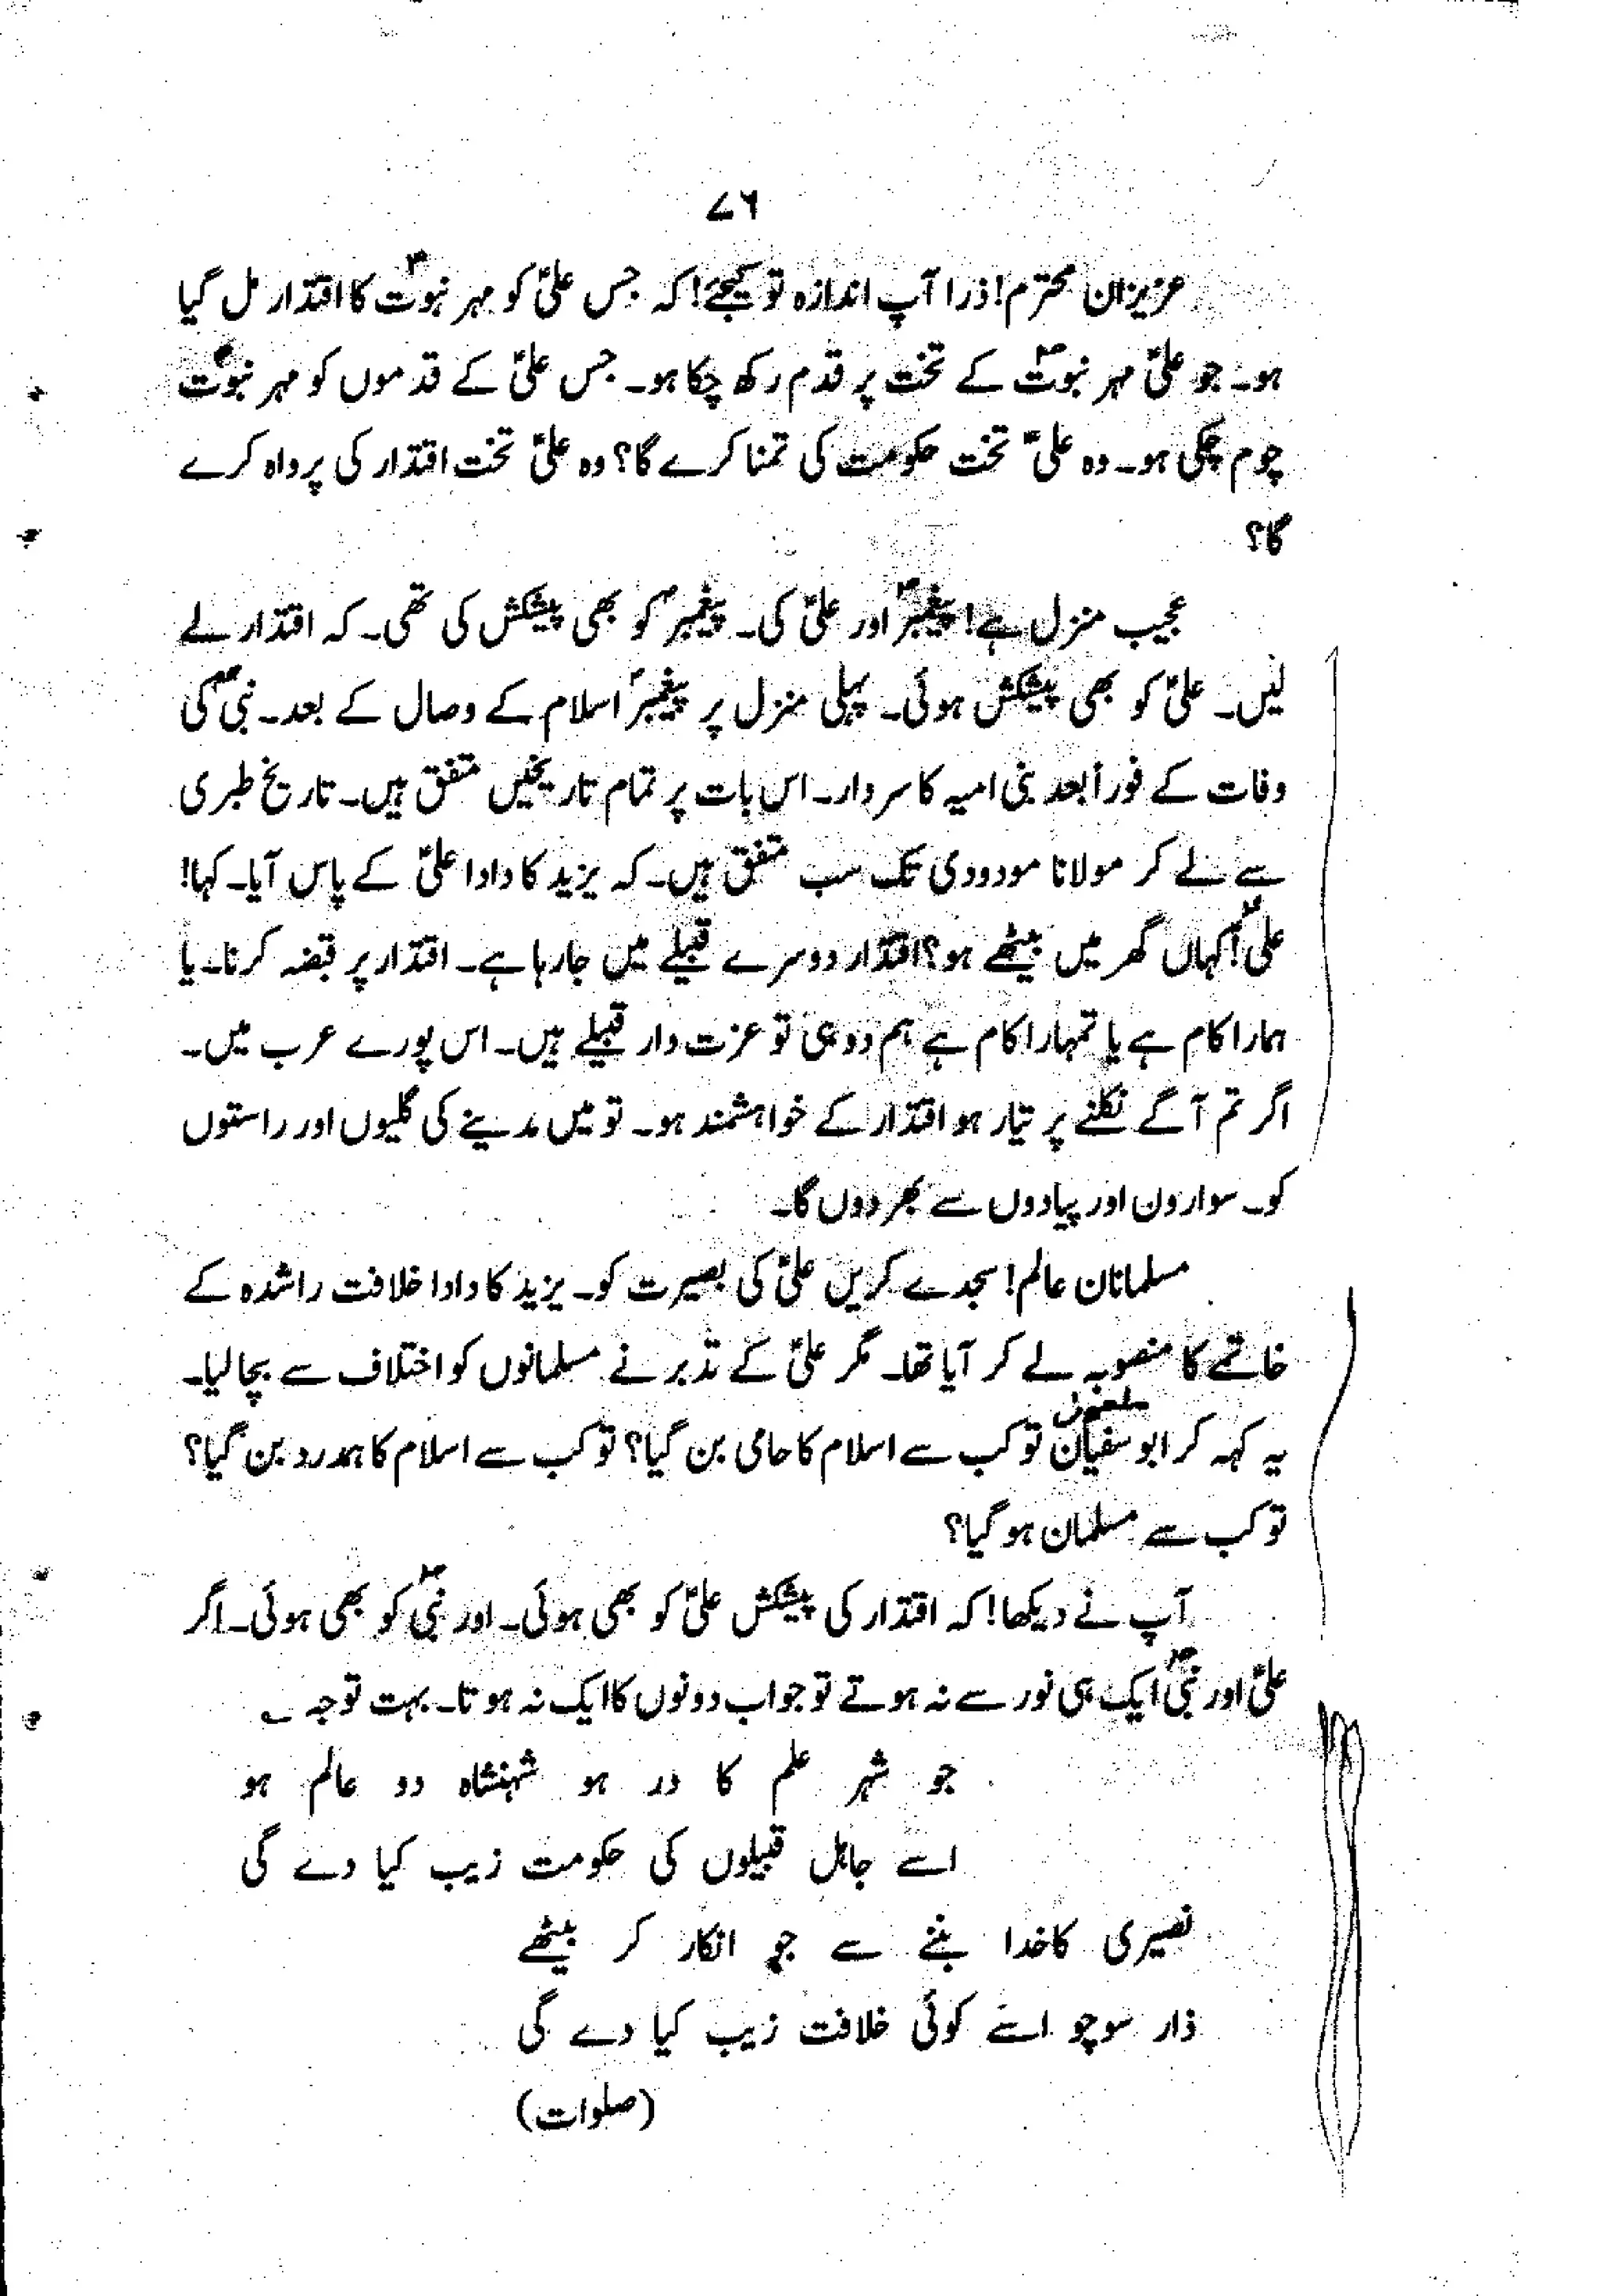 ۷۶
عزیزان محترم! ذرا آپ اندازہ تو کیجئے! کہ جس علیؑ کو مہر نبوتؐ کا اقتدار مل گیا
ہو۔ جو علیؑ مہر نبوتؐ کے تخت پر قدم رکھ چکا ہو۔ جس علیؑ کے قدموں کو مہر نبوتؐ
چوم چکی ہو۔ وہ علیؑ تخت حکومت کی تمنا کرے گا؟ وہ علیؑ تخت اقتدار کی پرواہ کرے
گا؟
عجیب منزل ہے! پیغمبرؐ اور علیؑ کی۔ پیغمبرؐ کو بھی پیشکش کی تھی۔ کہ اقتدار لے
لیں۔ علیؑ کو بھی پیشکش ہوئی۔ پہلی منزل پر پیغمبرؐ اسلام کے وصال کے بعد۔ نبیؐ کی
وفات کے فوراً بعد بنی امیہ کا سردار۔ اس بات پر تمام تاریخیں متفق ہیں۔ تاریخ طبری
سے لے کر مولانا مودودی تک سب متفق ہیں۔ کہ یزید کا دادا علیؑ کے پاس آیا۔ کہا!
علیؑ! کہاں گھر میں بیٹھے ہو؟ اقتدار دوسرے قبیلے میں جا رہا ہے۔ اقتدار پر قبضہ کرنا۔ یا
ہمارا کام ہے یا تمہارا کام ہے ہم دو ہی تو عزت دار قبیلے ہیں۔ اس پورے عرب میں۔
اگر تم آگے نکلنے پر تیار ہو اقتدار کے خواہشمند ہو۔ تو میں مدینے کی گلیوں اور راستوں
کو۔ سوارون اور پیادوں سے بھر دوں گا۔
مسلمانان عالم! سجدے کریں علیؑ کی بصیرت کو۔ یزید کا دادا خلافت راشدہ کے
خاتمے کا منصوبہ لے کر آیا تھا۔ مگر علیؑ کے تدبر نے مسلمانوں کو اختلاف سے بچا لیا۔
ملعون
یہ کہہ کر ابو سفیان تو کب سے اسلام کا حامی بن گیا؟ تو کب سے اسلام کا ہمدرد بن گیا؟
تو کب سے مسلمان ہو گیا؟
آپ نے دیکھا! کہ اقتدار کی پیشکش علیؑ کو بھی ہوئی۔ اور نبیؐ کو بھی ہوئی۔ اگر
علیؑ اور نبیؐ ایک ہی نور سے نہ ہوتے تو جواب دونوں کا ایک نہ ہوتا۔ بہت توجہ ؎
جو شہر علم کا در ہو شہنشاہ دو عالم ہو
اسے جاہل قبیلوں کی حکومت زیب کیا دے گی
نصیری کا خدا بننے سے جو انکار کر بیٹھے
ذار سوچو اسے کوئی خلافت زیب کیا دے گی
(صلوات)